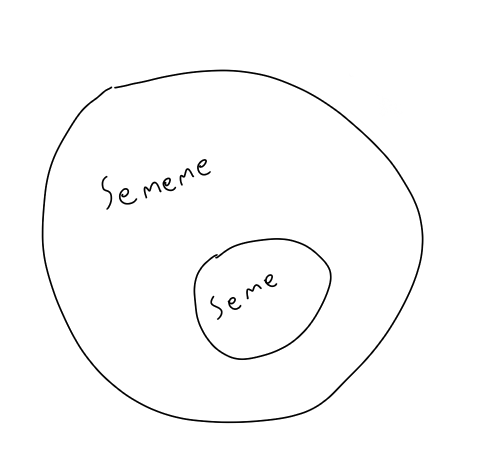 Sememe
Seme